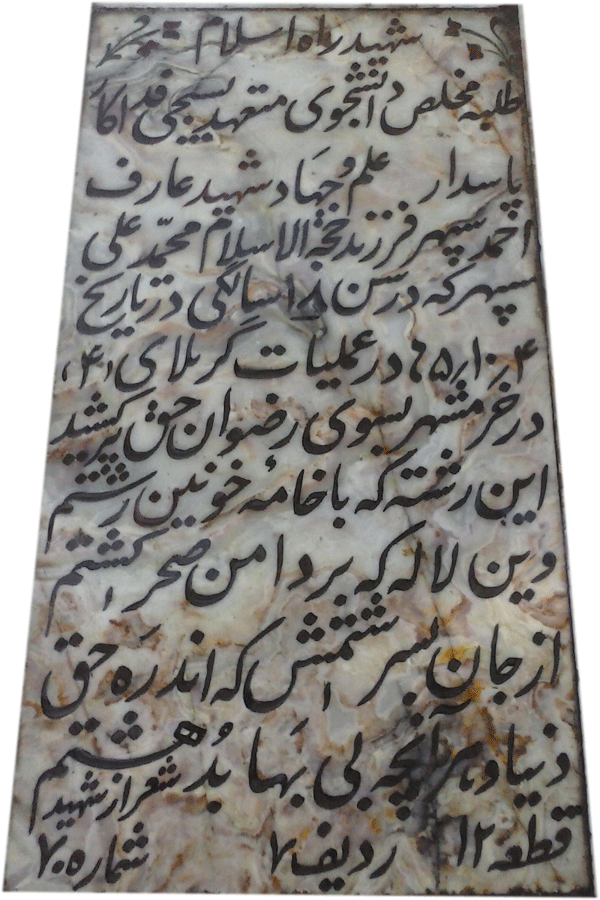 شهید راه اسلام
طلبه مخلص دانشجوی متعهد بسیجی فداکار
پاسدار علم و جهاد شهید عارف
احمد سپهر فرزند حجة الاسلام محمّد علی
سپهر که در سن ۱۸ سالگی در تاریخ
۶۵/۱۰/۴ در عملیات کربلای (۴)
در خرمشهر بسوی رضوان حق پر کشید
این رشته که با خامهٔ خونین رشتم
وین لاله که بر دامن صحرا کشتم
از جان بسرشتمش که اندر ره حق
دنیا و هر آنچه بی بَها بُد هشتم
شعر از شهید
قطعه ۱۲ ردیف ۷ شماره ۷۰